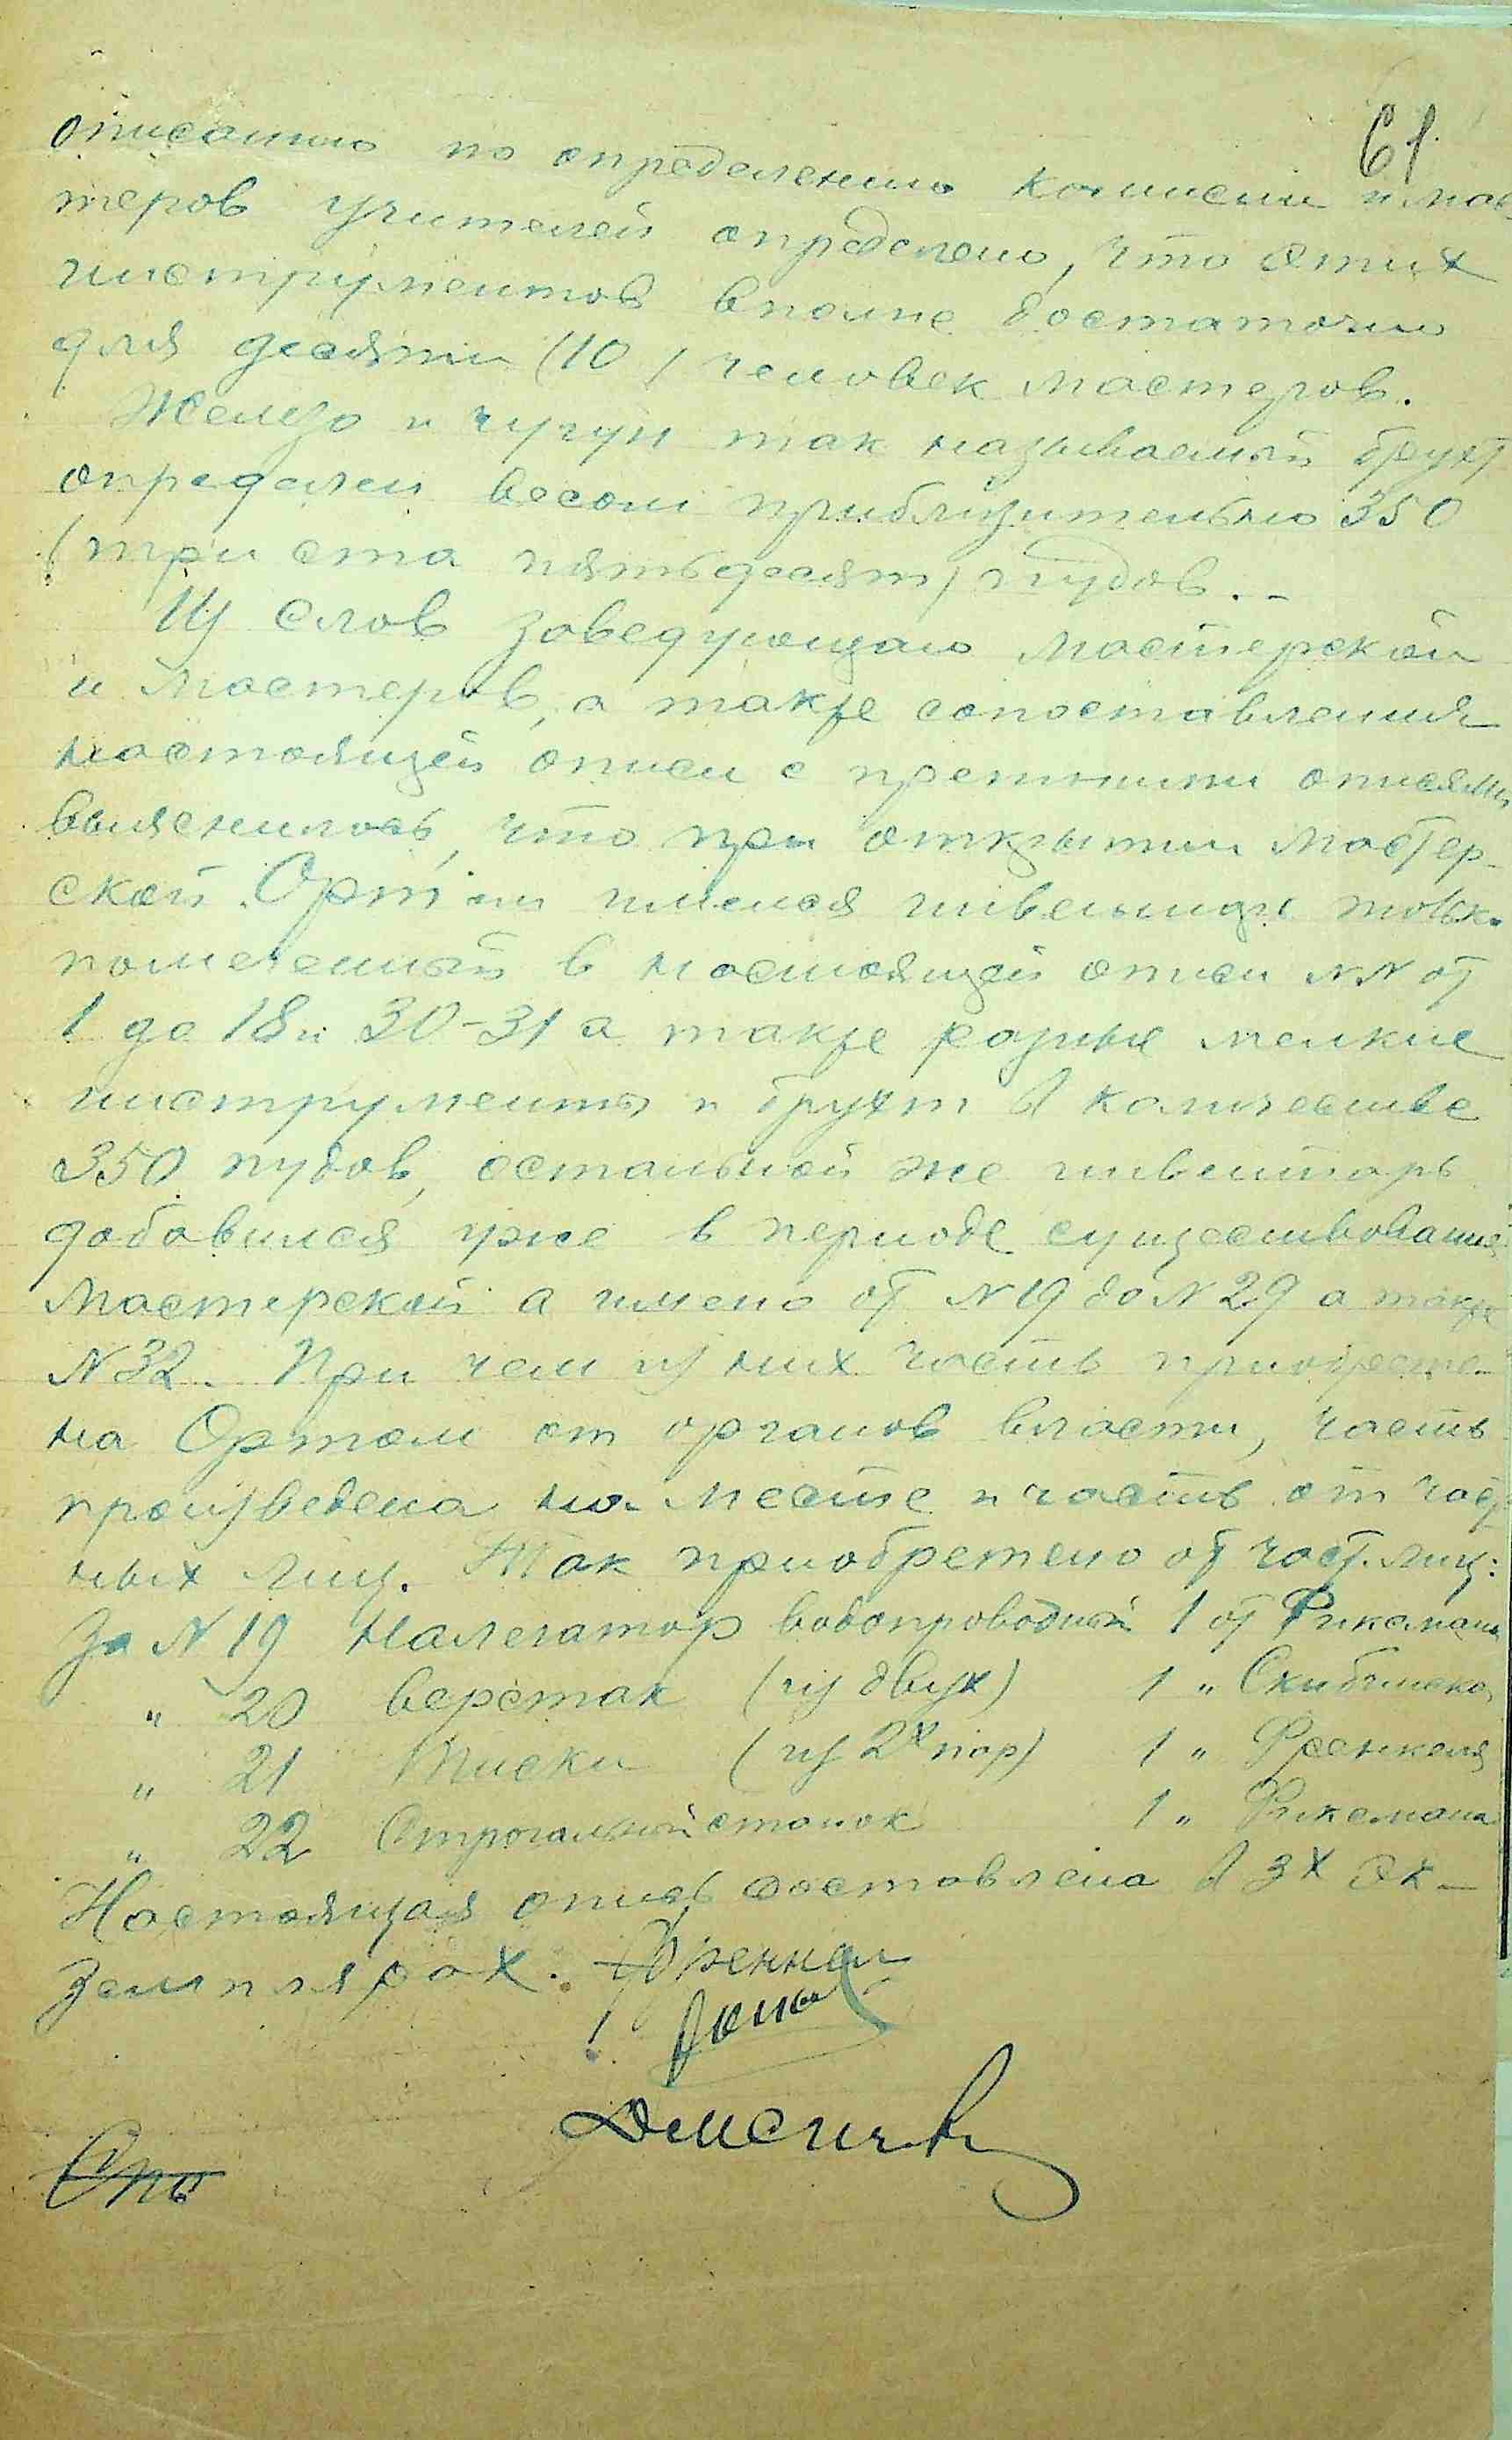 61
описанию по определению комиссии и мас
теров учителей определено, что этих
инструментов вполне достаточно
для десяти (10) человек мастеров.
Железо и чугун так называемый брухт
определен весом приблизительно 350
(три ста пятьдесят) пудов. -
Из слов заведующаго мастерской
и мастеров, а также сопоставления
настоящей описи с прежними описями
выяснилось, что при открытии мастер-
ской Орт'ом имелся инвентарь
помеченный в настоящей описи NN от
1 до 18 и 30-31 а также разные мелкие
инструменты и брухт в количестве
350 пудов, остальной же инвентарь
добавился уже в периоде существования
мастерской а имено от N 19 до N 29 а также
N 32. При чем из них часть приобрете-
на Ортом от органов власти, часть
произведена на месте и часть от част
ных лиц. Так приобретено от част. лиц:
За N 19 водопроводный 1 от Фиксмана
" 20 верстак (из двух) 1 "
" 21 Тиски (из 2х пар) 1 " Френкеля
" 22 Строгальный станок 1 " Фиксмана
Настоящая опись составлена в 3х эк-
земплярах. Френкел
Опи